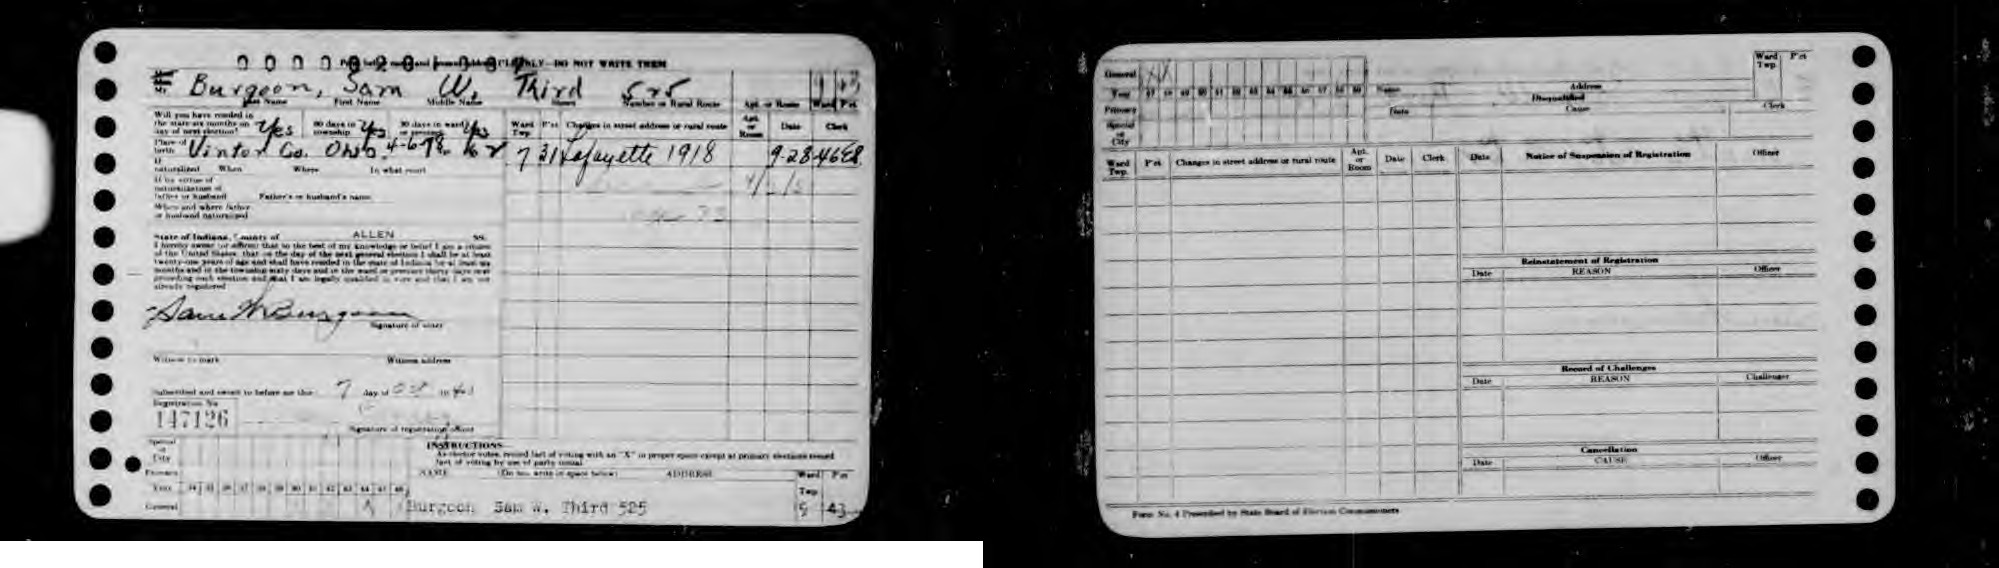 DO NOT WRITE THEM
Mr. Burgoon, Sam W. Third 525
Last Name First Name Middle Name Street Number or Rural Route Apt. or Room Ward Pct
Will you have resided in
the state six months on
day of next election? Yes
60 days in
township Yes
30 days in ward
or precinct Yes
Place of
birth Vinton Co. Ohio. 4-6-78
If
naturalized When Where In what court
If by virtue of
naturalization of
father or husband Father's or husband's name
When and where father
or husband naturalized
State of Indiana, County of ALLEN SS.
I hereby swear (or affirm) that to the best of my knowledge or belief I am a citizen
of the United States, that on the day of the next general election I shall be at least
twenty-one years of age and shall have resided in the state of Indiana for at least six
months and in the township sixty days and in the ward or precinct thirty days next
preceding such election and that I am legally qualified to vote and that I am not
already registered
Sam W Burgoon
Signature of voter
Witness to mark Witness address
Subscribed and sworn to before me this 7 day of Oct 19
Registration No
147126
Signature of registration officer
Ward
Twp. Pct Changes in street address or rural route Apt.
or
Room Date Clerk
7 31 Lafayette 1918 9-23-46
INSTRUCTIONS
As elector votes, record fact of voting with an "X" in proper space except at primary elections record
fact of voting by use of party initial
NAME (Do not write in space below) ADDRESS Ward Pct
Twp
Special
or
City
Primary
Year 34 35 36 37 38 39 40 41 42 43 44 45 46
General X
Burgoon Sam W. Third 525 5 43
General XX
Year 47 48 49 50 51 52 53 54 55 56 57 58 59
Primary
Special
or
City
Name Address
Disqualified
Date Cause Clerk
Ward
Twp Pct
Ward
Twp. Pct Changes in street address or rural route Apt.
or
Room Date Clerk
Date Notice of Suspension of Registration Officer
Reinstatement of Registration
Date REASON Officer
Record of Challenges
Date REASON Challenger
Cancellation
Date CAUSE Officer
Form No. 4 Prescribed by State Board of Election Commissioners